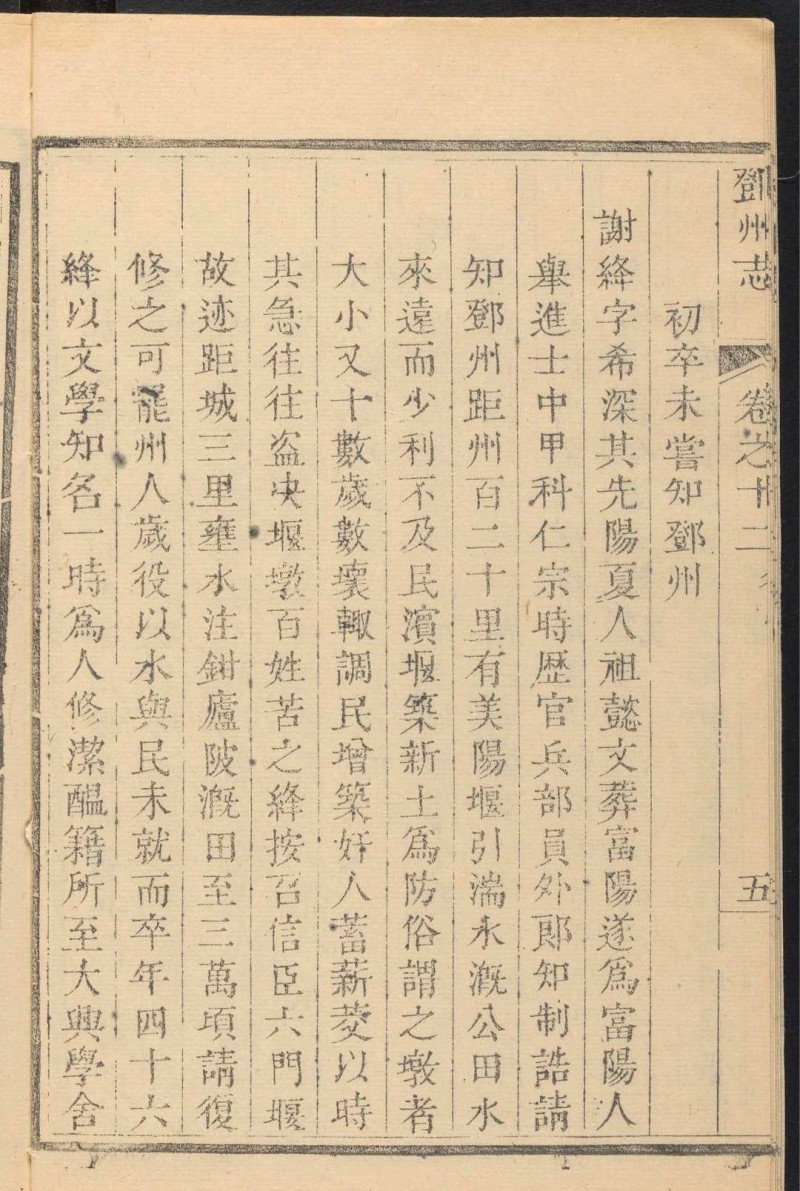 鄧州志 卷之十二 五
初卒未嘗知鄧州
謝絳字希深其先陽夏人祖懿文葬富陽遂爲富陽人
舉進士中甲科仁宗時歷官兵部員外郎知制誥請
知鄧州距州百二十里有美陽堰引湍水漑公田水
來遠而少利不及民濱堰築新土爲防俗謂之墩者
大小又十數歲數壞輙調民增築奸人蓄薪茭以時
其急往往盜决堰墩百姓苦之絳按召信臣六門堰
故迹距城三里壅水注鉗廬陂漑田至三萬頃請復
修之可罷州人歲役以水與民未就而卒年四十六
絳以文學知名一時爲人修潔醞籍所至大興學舍